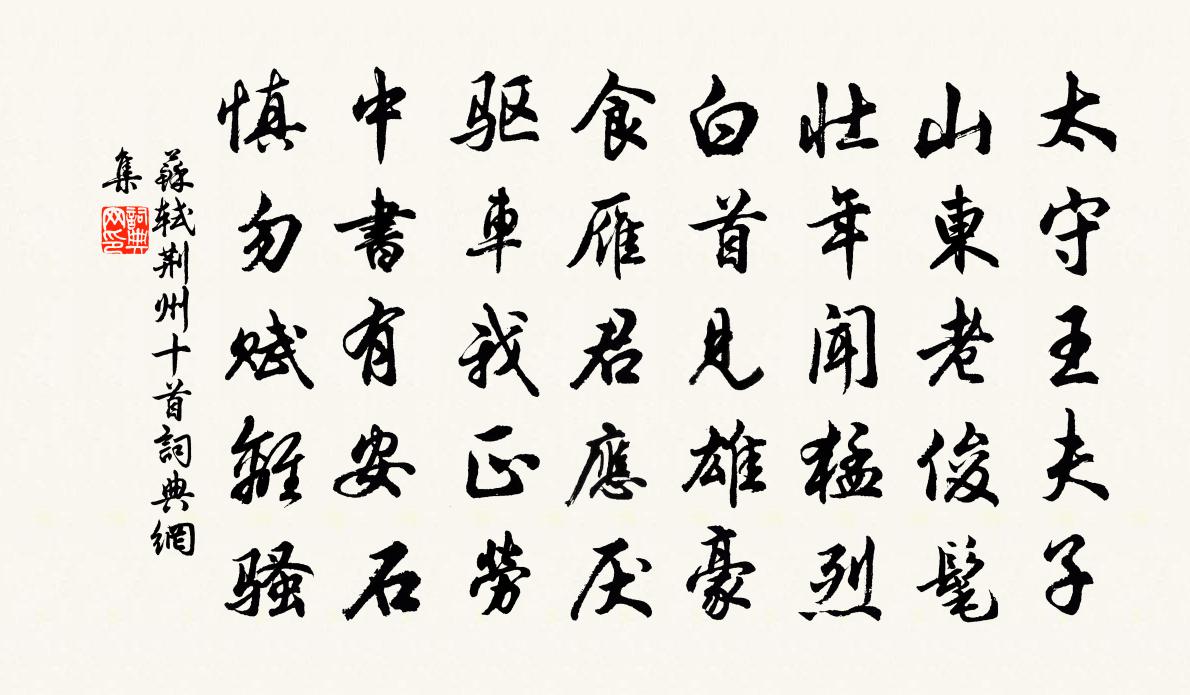 太守王夫子
山東老俊髦
壯年聞猛烈
白首見雄豪
食雁君應厌
驱車我正勞
中書有安石
慎勿赋離骚
蘇軾荆州十首詞典網
集
詞典
网印